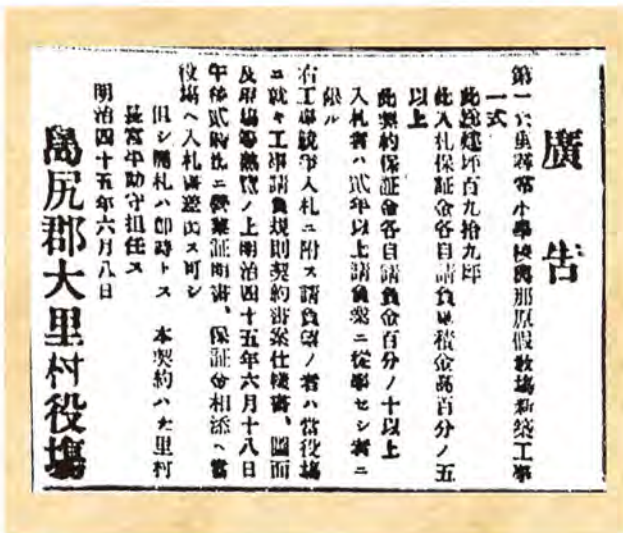 廣告
第一大重尋常小學校與那原假敎塲新築工事
一式
此總建坪百九拾九坪
此入札保証金各自請負見積金高百分ノ五
以上
此契約保証金各自請負金百分ノ十以上
入札者ハ貳年以上請負業ニ從事セシ者ニ
限ル
右工事競爭入札ニ附ス請負望ノ者ハ當役塲
ニ就キ工事請負規則契約書案仕樣書、圖面
及現塲等熟覽ノ上明治四十五年六月十八日
午後貳時迄ニ營業証明書、保証金相添ヘ當
役塲ヘ入札書差出ス可シ
但シ開札ハ即時トス 本契約ハ大里村
長宮平助守担任ス
明治四十五年六月八日
島尻郡大里村役塲